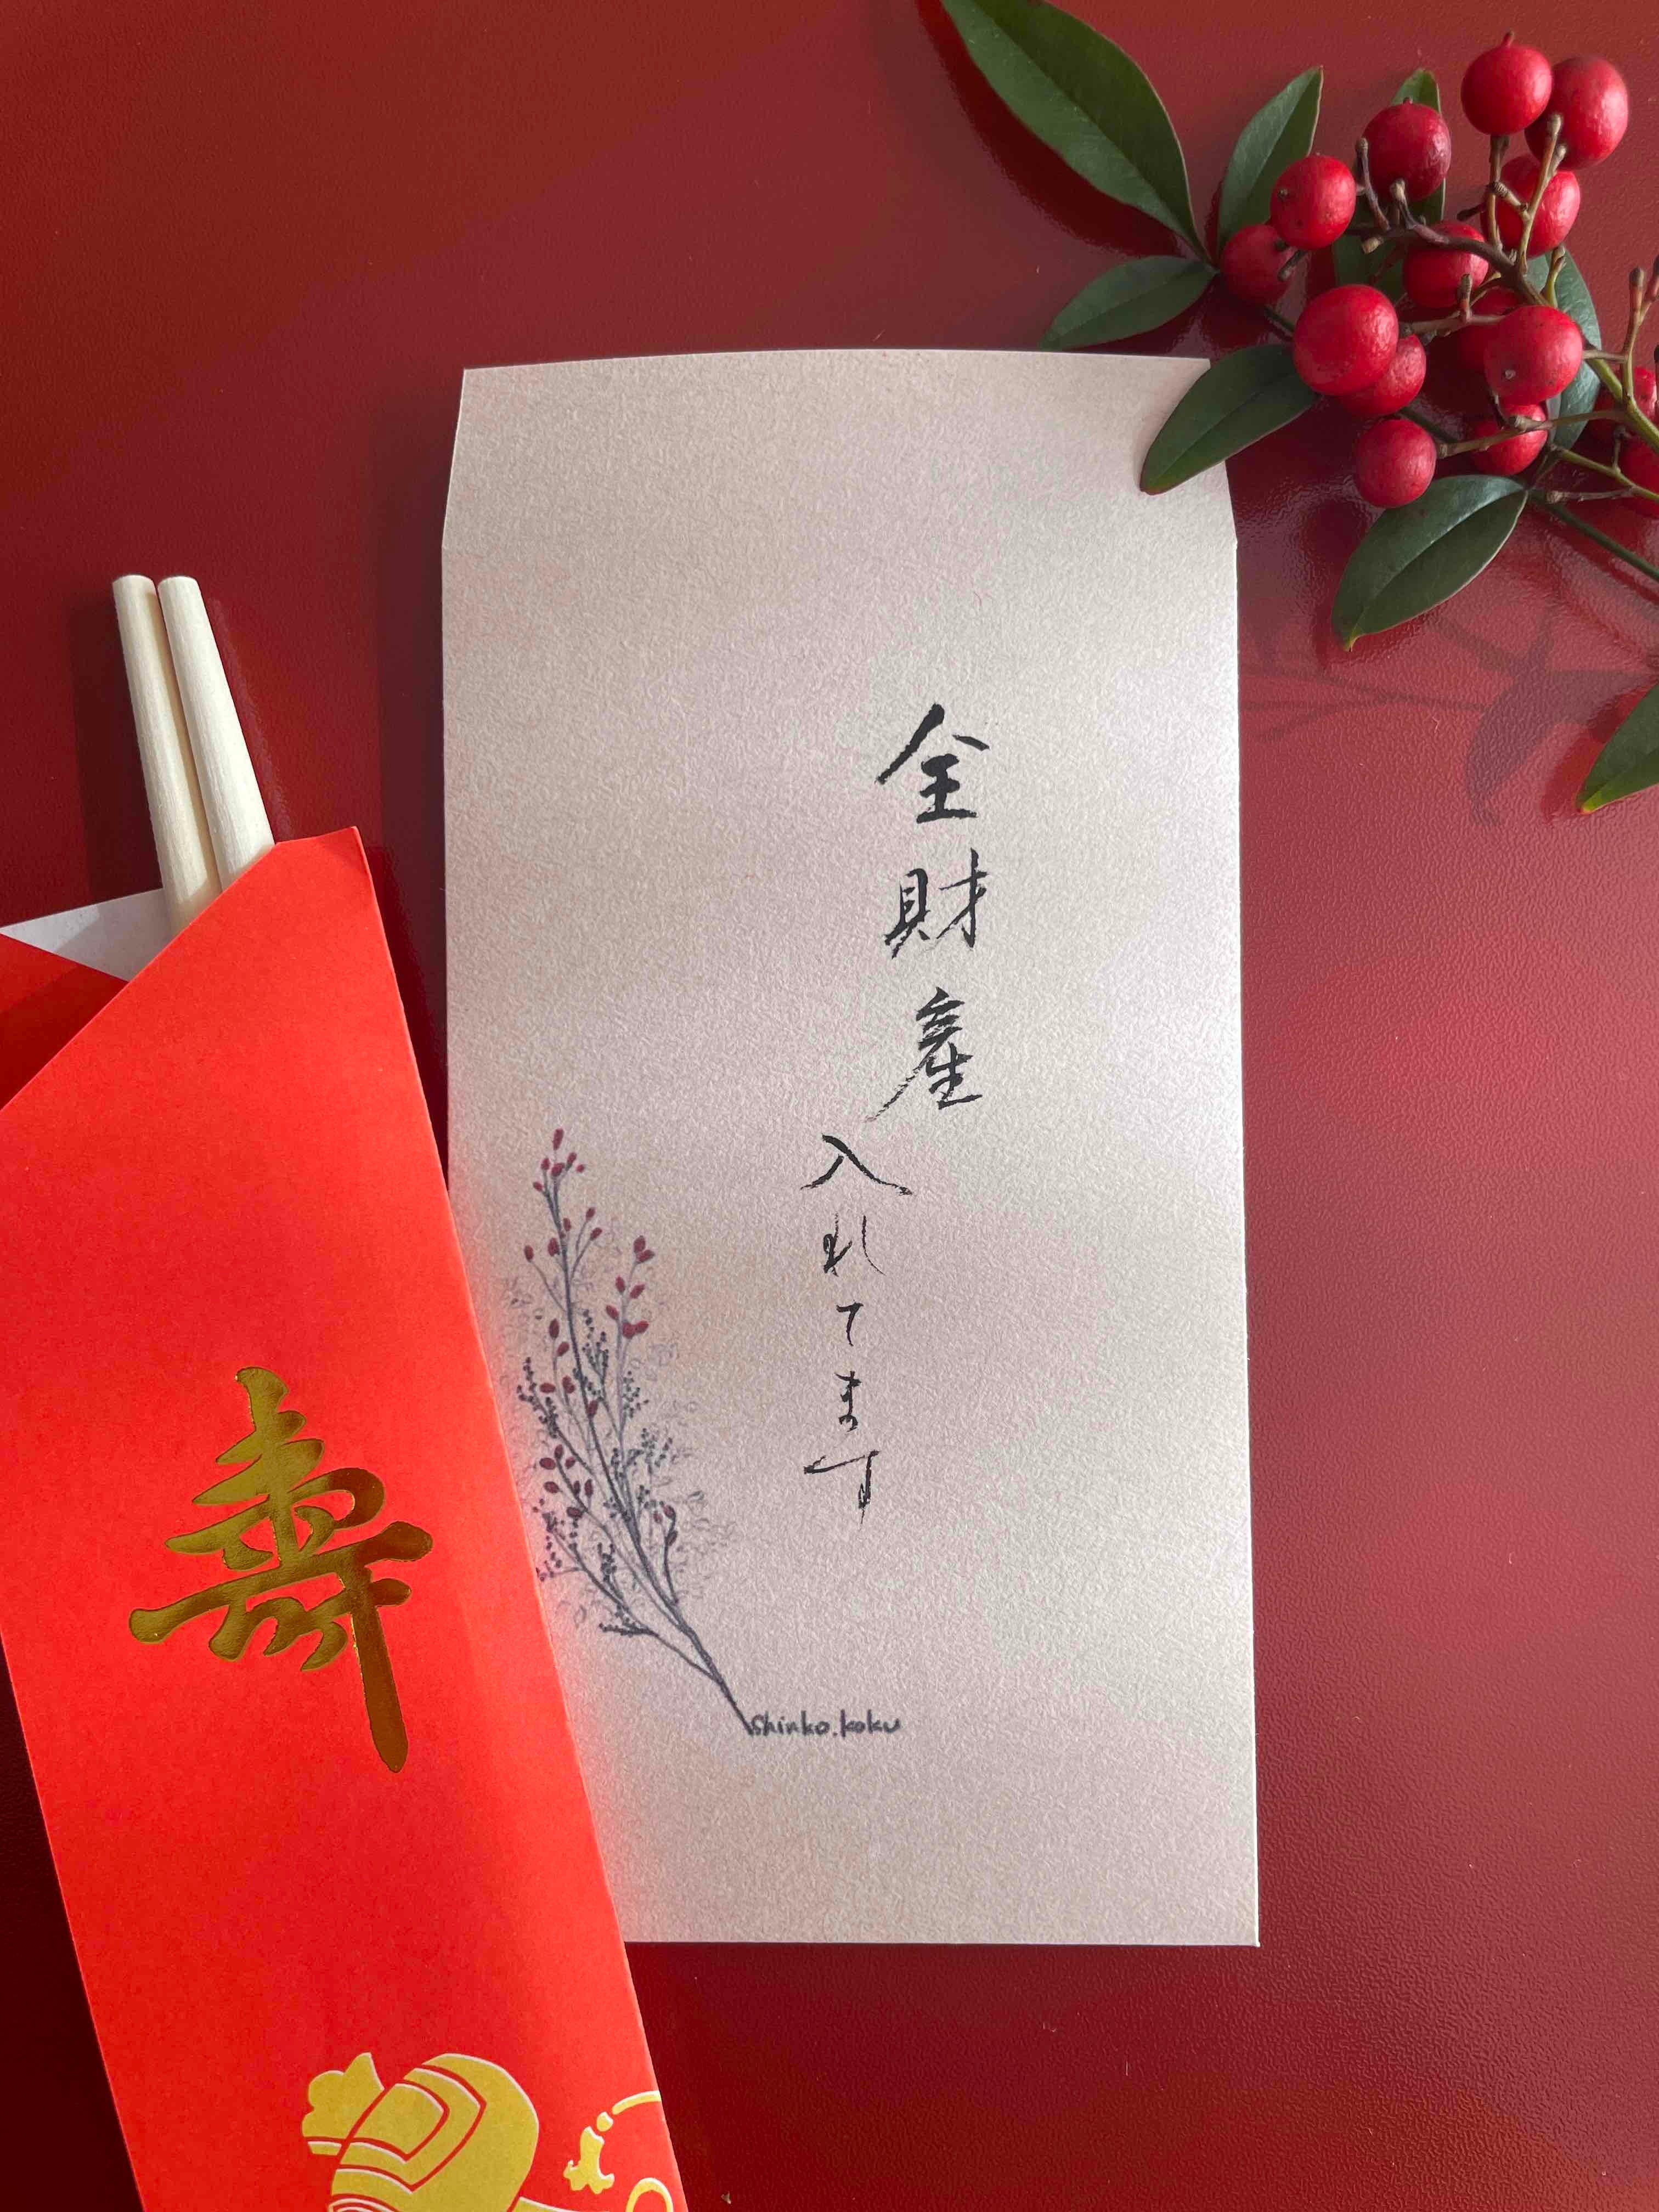 全財産
入れてます
shinko.koku
寿